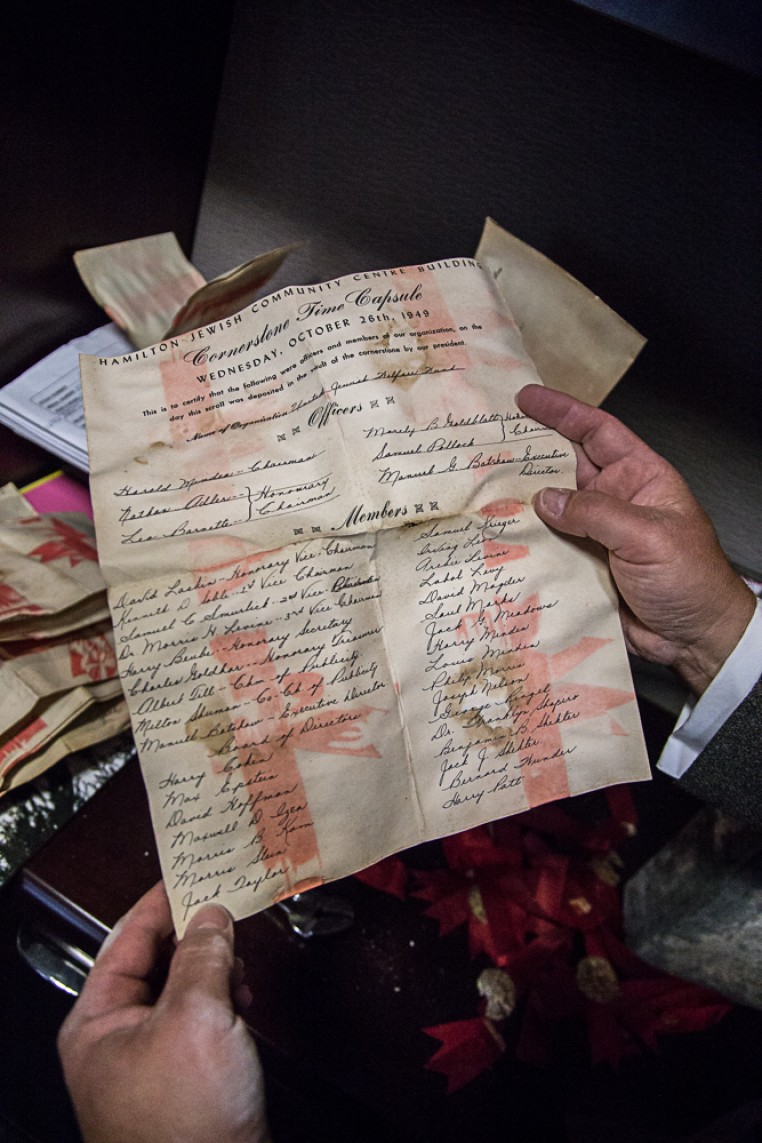 HAMILTON JEWISH COMMUNITY CENTRE BUILDING
Cornerstone Time Capsule
WEDNESDAY, OCTOBER 26th, 1949
This is to certify that the following were officers and members of our organization, on the
day this scroll was deposited in the vault of the cornerstone by our president.
Name of Organization United Jewish Welfare Fund
Officers
Harold Minden - Chairman
Nathan Adler - } Honourary
Leo Barnett - } Chairman
Samuel Pollock
Manuel G. Batshaw - Executive
Director.
Members
David Laskin - Honorary Vice-Chairman
Kenneth D. - 1st Vice Chairman
Samuel C. Smurlick - 2nd Vice
Dr. Morris H. Levine - 3rd Vice Chairman
Harry - Honorary Secretary
Charles Goldhar - Honorary Treasurer
Albert - Chm of Publicity
Milton Shuman - Co-Ch of Publicity
Manuel Batshaw - Executive Director
Board of Directors
Harry Cohen
Max Epstein
David Hoffman
Maxwell D.
Morris B.
Morris Stein
Jack Taylor
Samuel Krieger
Irving
Archie Levine
Levy
David Magder
Saul Marks
Jack G. Meadows
Harry Minden
Louis Minden
Philip Morris
Joseph Nelson
George
Dr. Franklyn Shapiro
Benjamin B. Shekter
Jack J. Shekter
Bernard
Harry